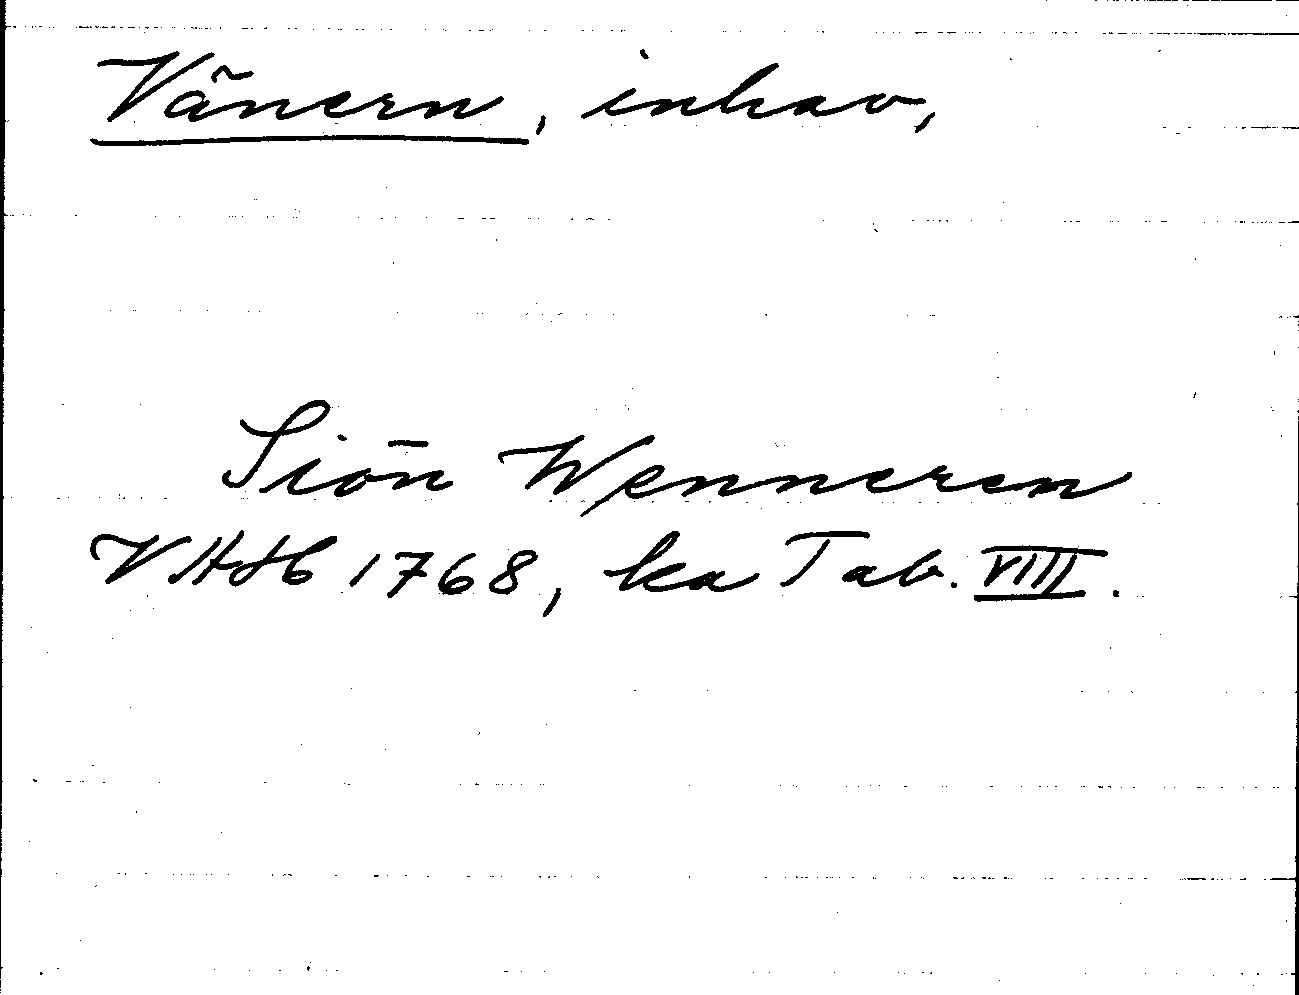 Vänern, inhav,
Siön Wenneren
VHHb 1768, ka Tab. VIII.